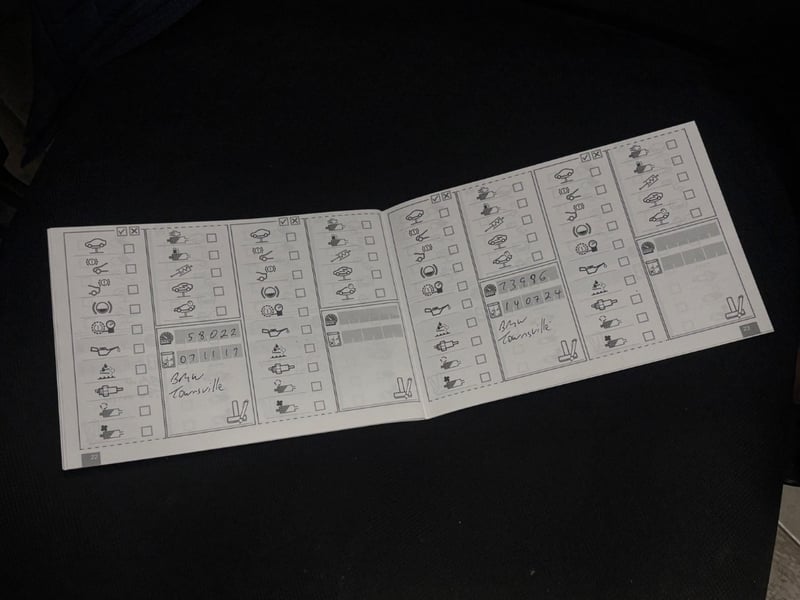 58022
071117
BMW
Townsville
22
73986
140724
BMW
Townsville
23